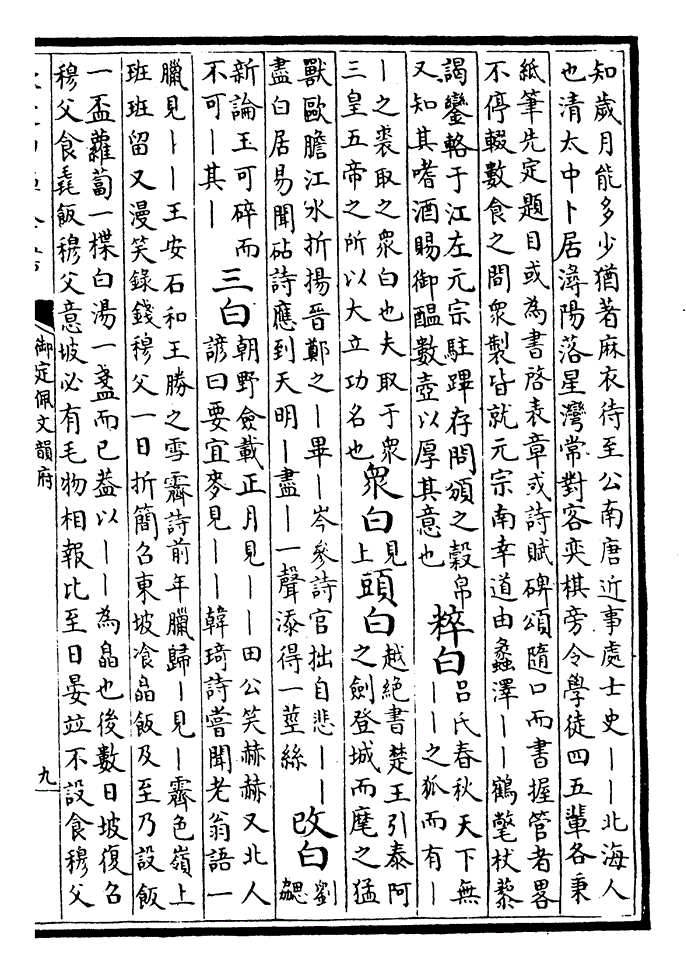 知歲月能多少猶著麻衣待至公南唐近事處士史——北海人
也清太中卜居潯陽落星灣常對客奕棋旁令學徒四五輩各秉
紙筆先定題目或為書啓表章或詩賦碑頌隨口而書握管者畧
不停輟數食之間衆製皆就元宗南幸道由蠡澤——鶴氅杖藜
謁鑾輅于江左元宗駐蹕存問頒之糓帛
又知其嗜酒賜御醖數壺以厚其意也
粹白
呂氏春秋天下無
——之狐而有—
—之裘取之衆白也夫取于衆
三皇五帝之所以大立功名也
衆白
見
上
頭白
越絶書楚王引泰阿
之劍登城而麾之猛
獸歐膽江水折揚晉鄭之—畢—岑參詩官拙自悲——
盡白居易聞砧詩應到天明—盡—一聲添得一莖絲
改白
劉
勰
新論玉可碎而
不可—其—
三白
朝野僉載正月見——田公笑赫赫又北人
諺曰要宜麥見——韓琦詩嘗聞老翁語一
臘見——王安石和王勝之雪霽詩前年臘歸—見—霽色嶺上
班班留又漫笑錄錢穆父一日折簡召東坡飡皛飯及至乃設飯
一盃蘿蔔一楪白湯一盞而已葢以——為皛也後數日坡復召
穆父食毳飯穆父意坡必有毛物相報比至日晏竝不設食穆父
御定佩文韻府
九